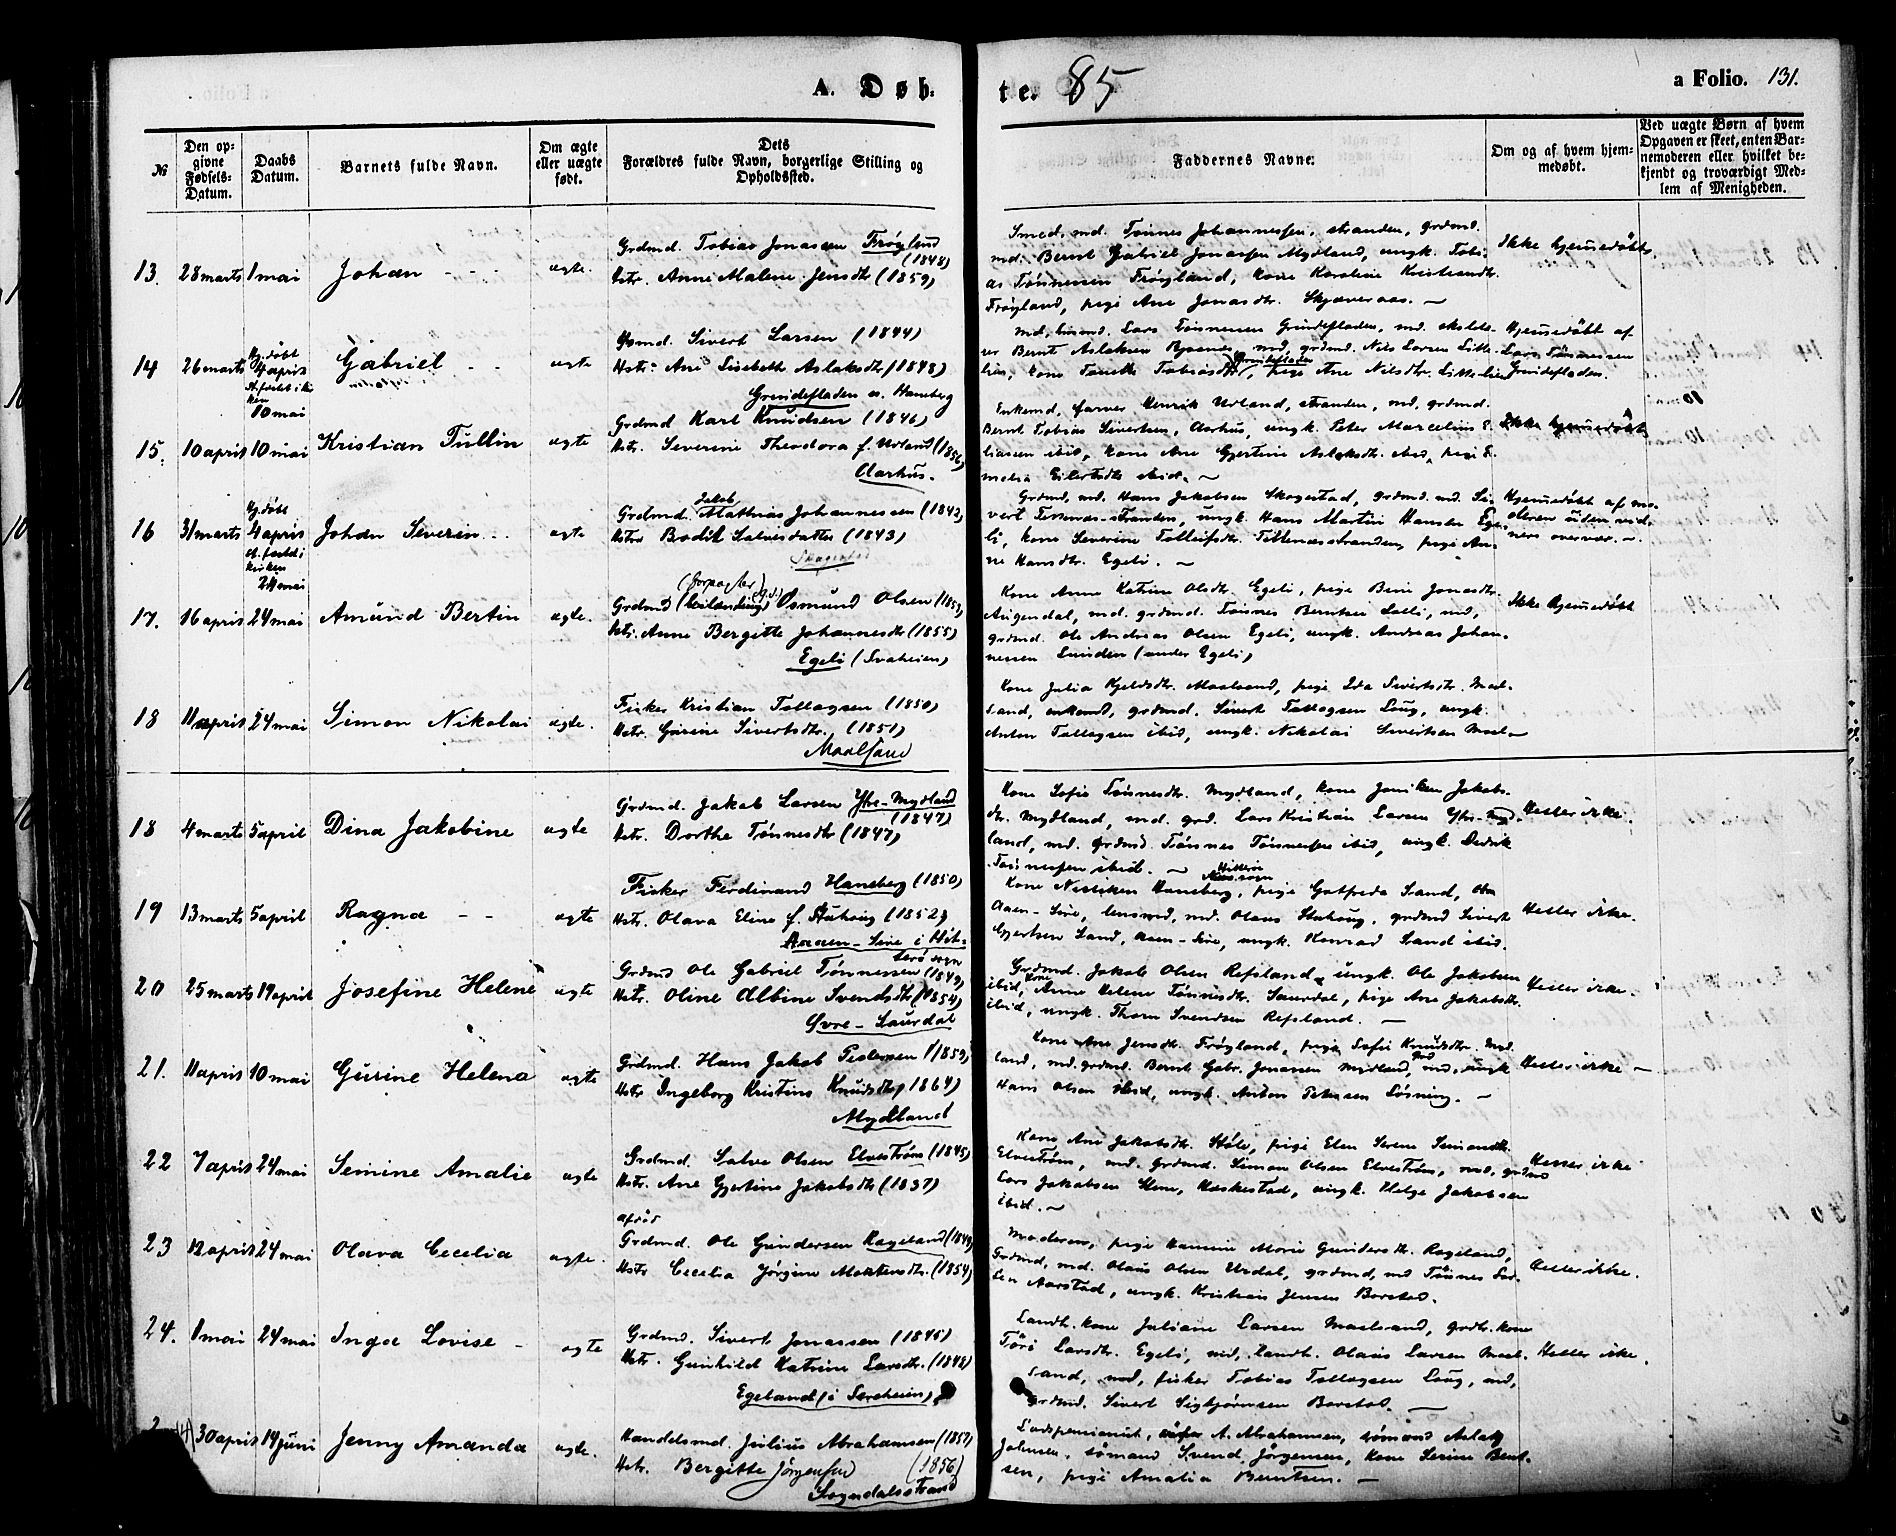 A. Døb-
te. 85
a Folio. 131.
№
Den op-
givne
Fødsels-
Datum.
Daabs
Datum.
Barnets fulde Navn.
Om ægte
eller uægte
født.
Dets
Forældres fulde Navn, borgerlige Stilling og
Opholdssted.
Faddernes Navne.
Om og af hvem hjem-
medøbt.
Ved uægte Børn af hvem
Opgaven er skeet, enten Bar-
nemoderen eller hvilket be-
kjendt og troværdigt Med-
lem af Menigheden.
13. 28 marts 1 mai Johan - - - ægte.
Grdmd. Tobias Jonassen Frøylund
(1848)
Hstr. Anne Malene Jensdtr (1859)
Smed, md. Tønnes Johannessen, stranden, grdmd.
md. Bernt Gabriel Jonassen Mydland, ungk. Tobi-
as Tønnessen Frøyland, kone Karoline Kristiansdtr.
Frøyland, pige Ane Jonasdtr. Skjæveraas. —
Ikke hjemmedøbt,
14 26 marts
Hj.døbt
4 april
st. fæstet i kir
ken
10 mai
Gabriel - - ægte
Hsmd. Sivert Larsen (1844)
Hstr. Ane Lisebeth Aslaksdtr (1848)
Grindefladen u. Haneberg
md, husmd. Lars Tønnessen Grindefladen, md. skole-
rer Bernt Aslaksen md, grdmd. Nils Larsen Litle-
lien, kone Tonette Tobiasdtr, Grindefladen, pige Ane Nilsdtr. Litlelien
Hjemmedøbt af
Lars Tønnessen
Grindefladen.
15. 10 april 10 mai Kristian Tullin ægte
Grdmd Karl Knudsen (1846)
Hstr. Severine Theodora f. Urland (1856)
Aarhus.
Enkemd, farver Henrik Urland, stranden, md. grdmd.
Bernt Tobias Sivertsen, Aarhus, ungk. Peter Marcelius E-
liassen ibid, kone Ane Gjertine Aslaksdtr. ibid, pige E-
melia Eilertsdtr ibid. —
Ikke hjemmedøbt
16 31 marts
Hj.døbt
4 april
st. fæstet i
kirken
24 mai
Johan Severin - - ægte
Grdmd. Jakob Mathias Johannessen (1842)
Hstr Bodil Salvesdatter (1843)
Skogestad
Grdmd, md. Hans Jakobsen Skogestad, grdmd. md. Si-
vert stranden, ungk. Hans Martin Hansen Ege-
li, kone Severine Tollefsdtr. pige An-
ne Hansdtr. Egeli. —
Hjemmedøbt af mo-
deren uden vid-
ners overvær. —
17. 16 april 24 mai Amund Bertin ægte.
(forpagter)
Grdmd Osmund Olsen (1853)
Hstr. Anne Bergitte Johannesdtr (1855)
Egeli (Svaheien)
Kone Anne Katrine Olsdtr. Egeli, pige Bine Jonasdtr.
Augendal, md. grdmd. Tønnes Berntsen md,
grdmd. Ole Andreas Olsen Egeli, ungk. Andreas Johan-
nessen Lunden (under Egeli)
Ikke hjemmedøbt
18 11 april 24 mai Simon Nikolai ægte.
Fisker Kristian Tollagsen (1850)
Hstr. Gurine Sivertsdtr. (1851)
Maalsand
Kone Julia Kjeldsdtr. Maalsand, pige Ida Sivertsdtr. Maal-
sand, enkemd, grdmd. Sivert Tollagsen Loug, ungk.
Anton Tollagsen ibid, ungk. Nikolai Sivertsen Maal-
18 4 marts 5 april Dina Jakobine ægte
Grdmd. Jakob Larsen Ytre-Mydland
(1847)
Hstr. Dorthe Tønnesdtr (1847)
Kone Sofie Tønnesdtr. Mydland, kone Joniken Jakobs-
dtr. Mydland, md. grd. Lars Kristian Larsen Ytre-Myd-
land, md. Grdmd. Tønnes Tønnessen ibid, ungk. Dedrik
Tønnessen ibid. —
Heller ikke.
19 13 marts 5 april Ragna - - ægte
Fisker Ferdinand Haneberg (1850)
Hstr. Olava Eline f. Stuhoug (1852)
Aaen-Sire i Hit-
terø sogn
Kone Haneberg, pige Gotfreda Sand,
Aaen-Sire, lensmd, md. Olaus Stuhoug, grdmd Sivert
Gjertsen Sand, Aaen-Sire, ungk. Konrad Sand ibid.
Heller ikke.
20 25 marts 19 april Josefine Helene ægte
Grdmd Ole Gabriel Tønnessen (1849)
Hstr. Oline Albine Svendsdtr (1854)
Øvre-Saurdal
Grdmd. Jakob Olsen Refsland, ungk. Ole Jakobsen
ibid, kone Anne Helene Tønnesdtr. Saurdal, pige Ane Jakobsdtr.
ibid, ungk. Thorn Svendsen Refsland. —
Heller ikke -
21. 11 april 10 mai Gurine Helene ægte
Grdmd. Hans Jakob Pedersen (1859)
Hstr Ingeborg Kristine Knudsdtr (1864)
Mydland
Kone Ane Jensdtr. Frøyland, pige Sofie Knudsdtr. Myd-
land, md. grdmd. Bernt Gabr. Jonassen Mydland, md, ungk
Hans Olsen ibid, ungk. Anton Petersen Løsning. —
Heller ikke —
22 7 april 24 mai Semine Amalie ægte
Grdmd. Salve Olsen Elvestrøm (1845)
Hstr. Ane Gjertine Jakobsdtr (1837)
Kone Ane Jakobsdtr. Støle, pige Elen Serene Simonsdtr.
Elvestrøm, md. Grdmd. Simon Olsen Elvestrøm, md, grdmd
Lars Jakobsen Heskestad, ungk. Helge Jakobsen
ibid. —
Heller ikke
23 12 april 24 mai Olava Cecelia ægte.
afdød
Grdmd. Ole Gundersen Rageland (1849)
Hstr Cecelia Jørgine Mortensdtr. (1854)
Moderen, pige Hamine Marie Gundersdtr. Rageland,
Grdmd, md. Olaus Olsen Urdal, grdmd, md Tønnes
Aarstad, ungk. Kristian Jensen Barstad.
Heller ikke.
24. 1 mai 24 mai Inga Lovise - ægte
Grdmd. Sivert Jonassen (1845)
Hstr. Gunhild Katrine Larsdtr. (1848)
Egeland (i
Landh. kone Juliane Larsen Maalsand, grdb. kone
Larsdtr. Egeli, md, landh. Olaus Larsen Maal-
sand, md, fisker Tobias Tollagsen Loug, md,
grdmd. Sivert Sigbjørnsen Barstad. —
Heller ikke.
2 (14) 30 april 14 juni Jenny Amanda ægte.
Handelsmd. Julius Abrahamsen (1857)
Hstr. Bergitte Jørgensen (1856)
Sogndalsstrand
A. Abrahamsen, sømand Aslag
Johnsen, sømand Svend Jørgensen, kone Serine Bent-
sen, pige Amalia Berntsen. —